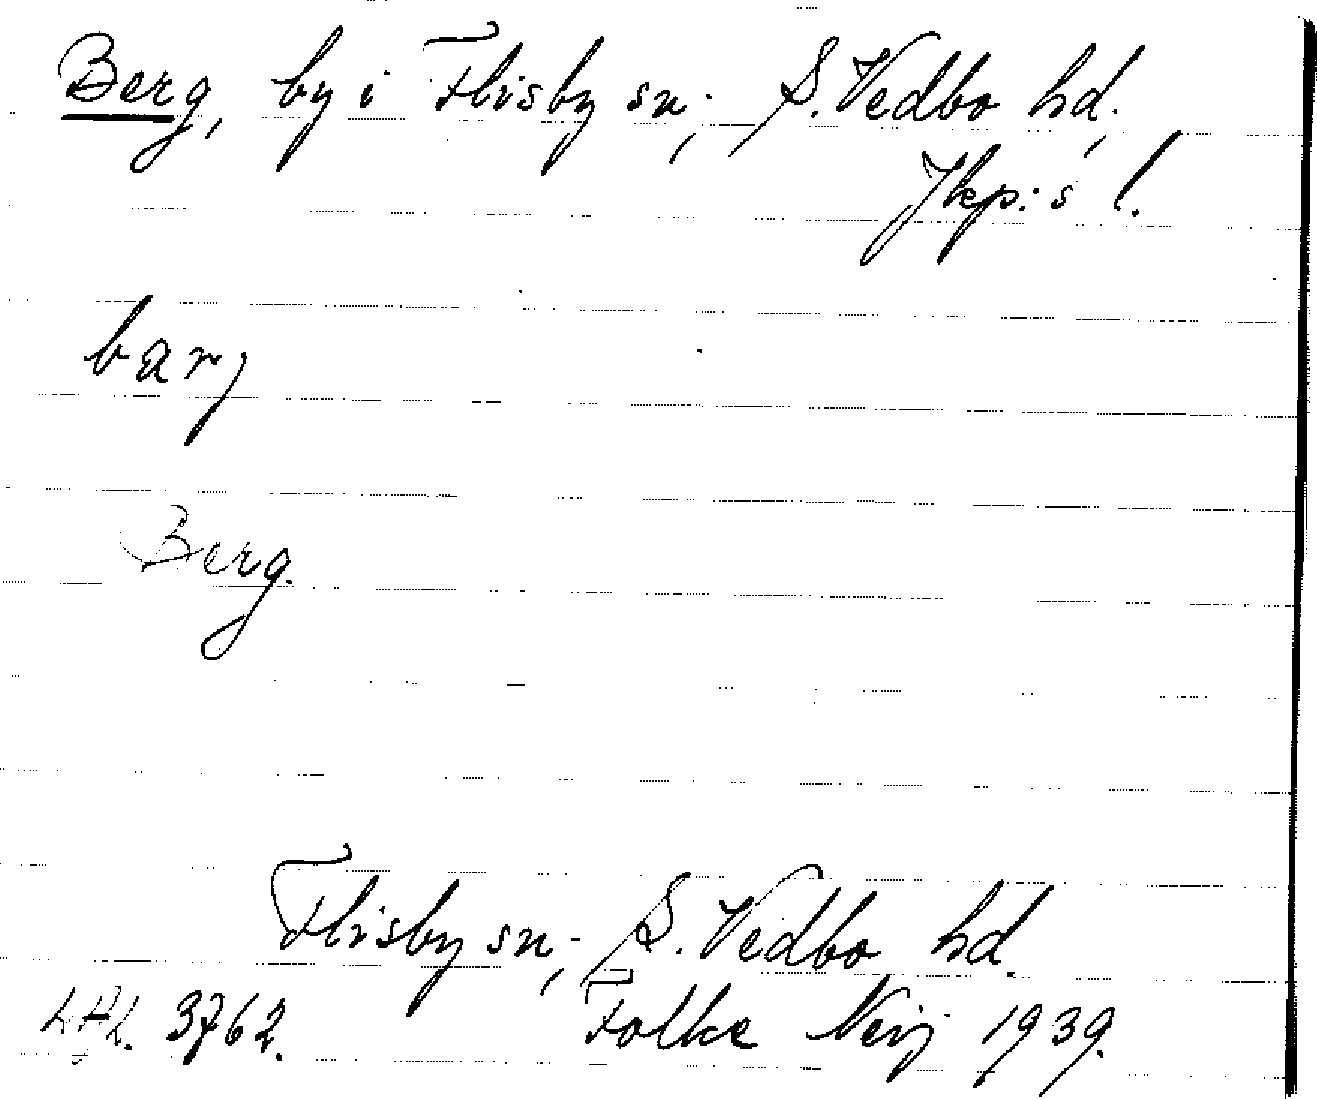 Berg, by i Flisby sn., S. Vedbo hd,
Jkp:s l.
barj
Berg.
Flisby sn., S. Vedbo hd.
3762. Folke Neij 1939.